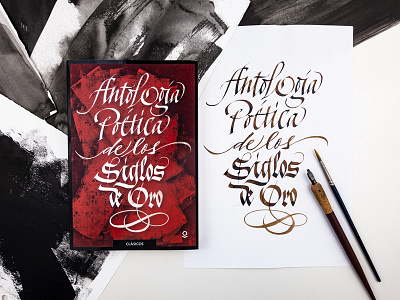 Antología
Poética
de los
Siglos
de Oro
CLÁSICOS
Antología
Poética
de los
Siglos
de Oro